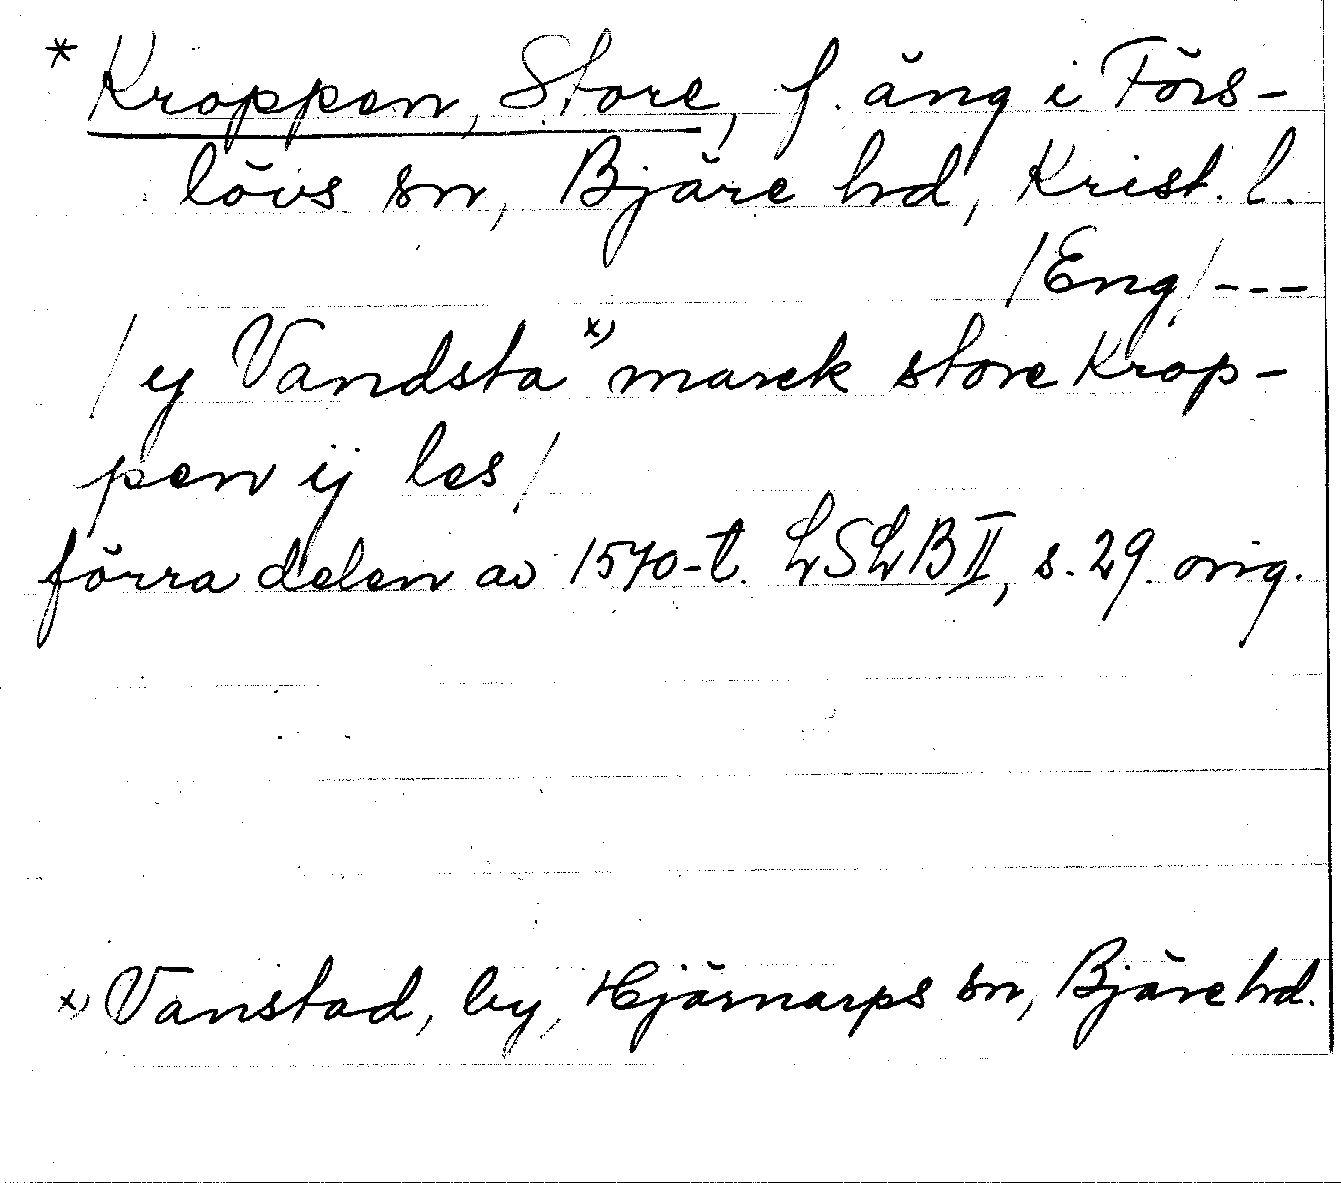 * Kroppen, Store, f. äng i Förs-
lövs sn, Bjäre hd, Krist. l.
/Eng/---
/ ij Vandsta x) marck store Krop-
pen ij les/
förra delen av 1570-t. LSLB II, s. 29. orig.
x) Vanstad, by, Hjärnarps sn, Bjäre hd.